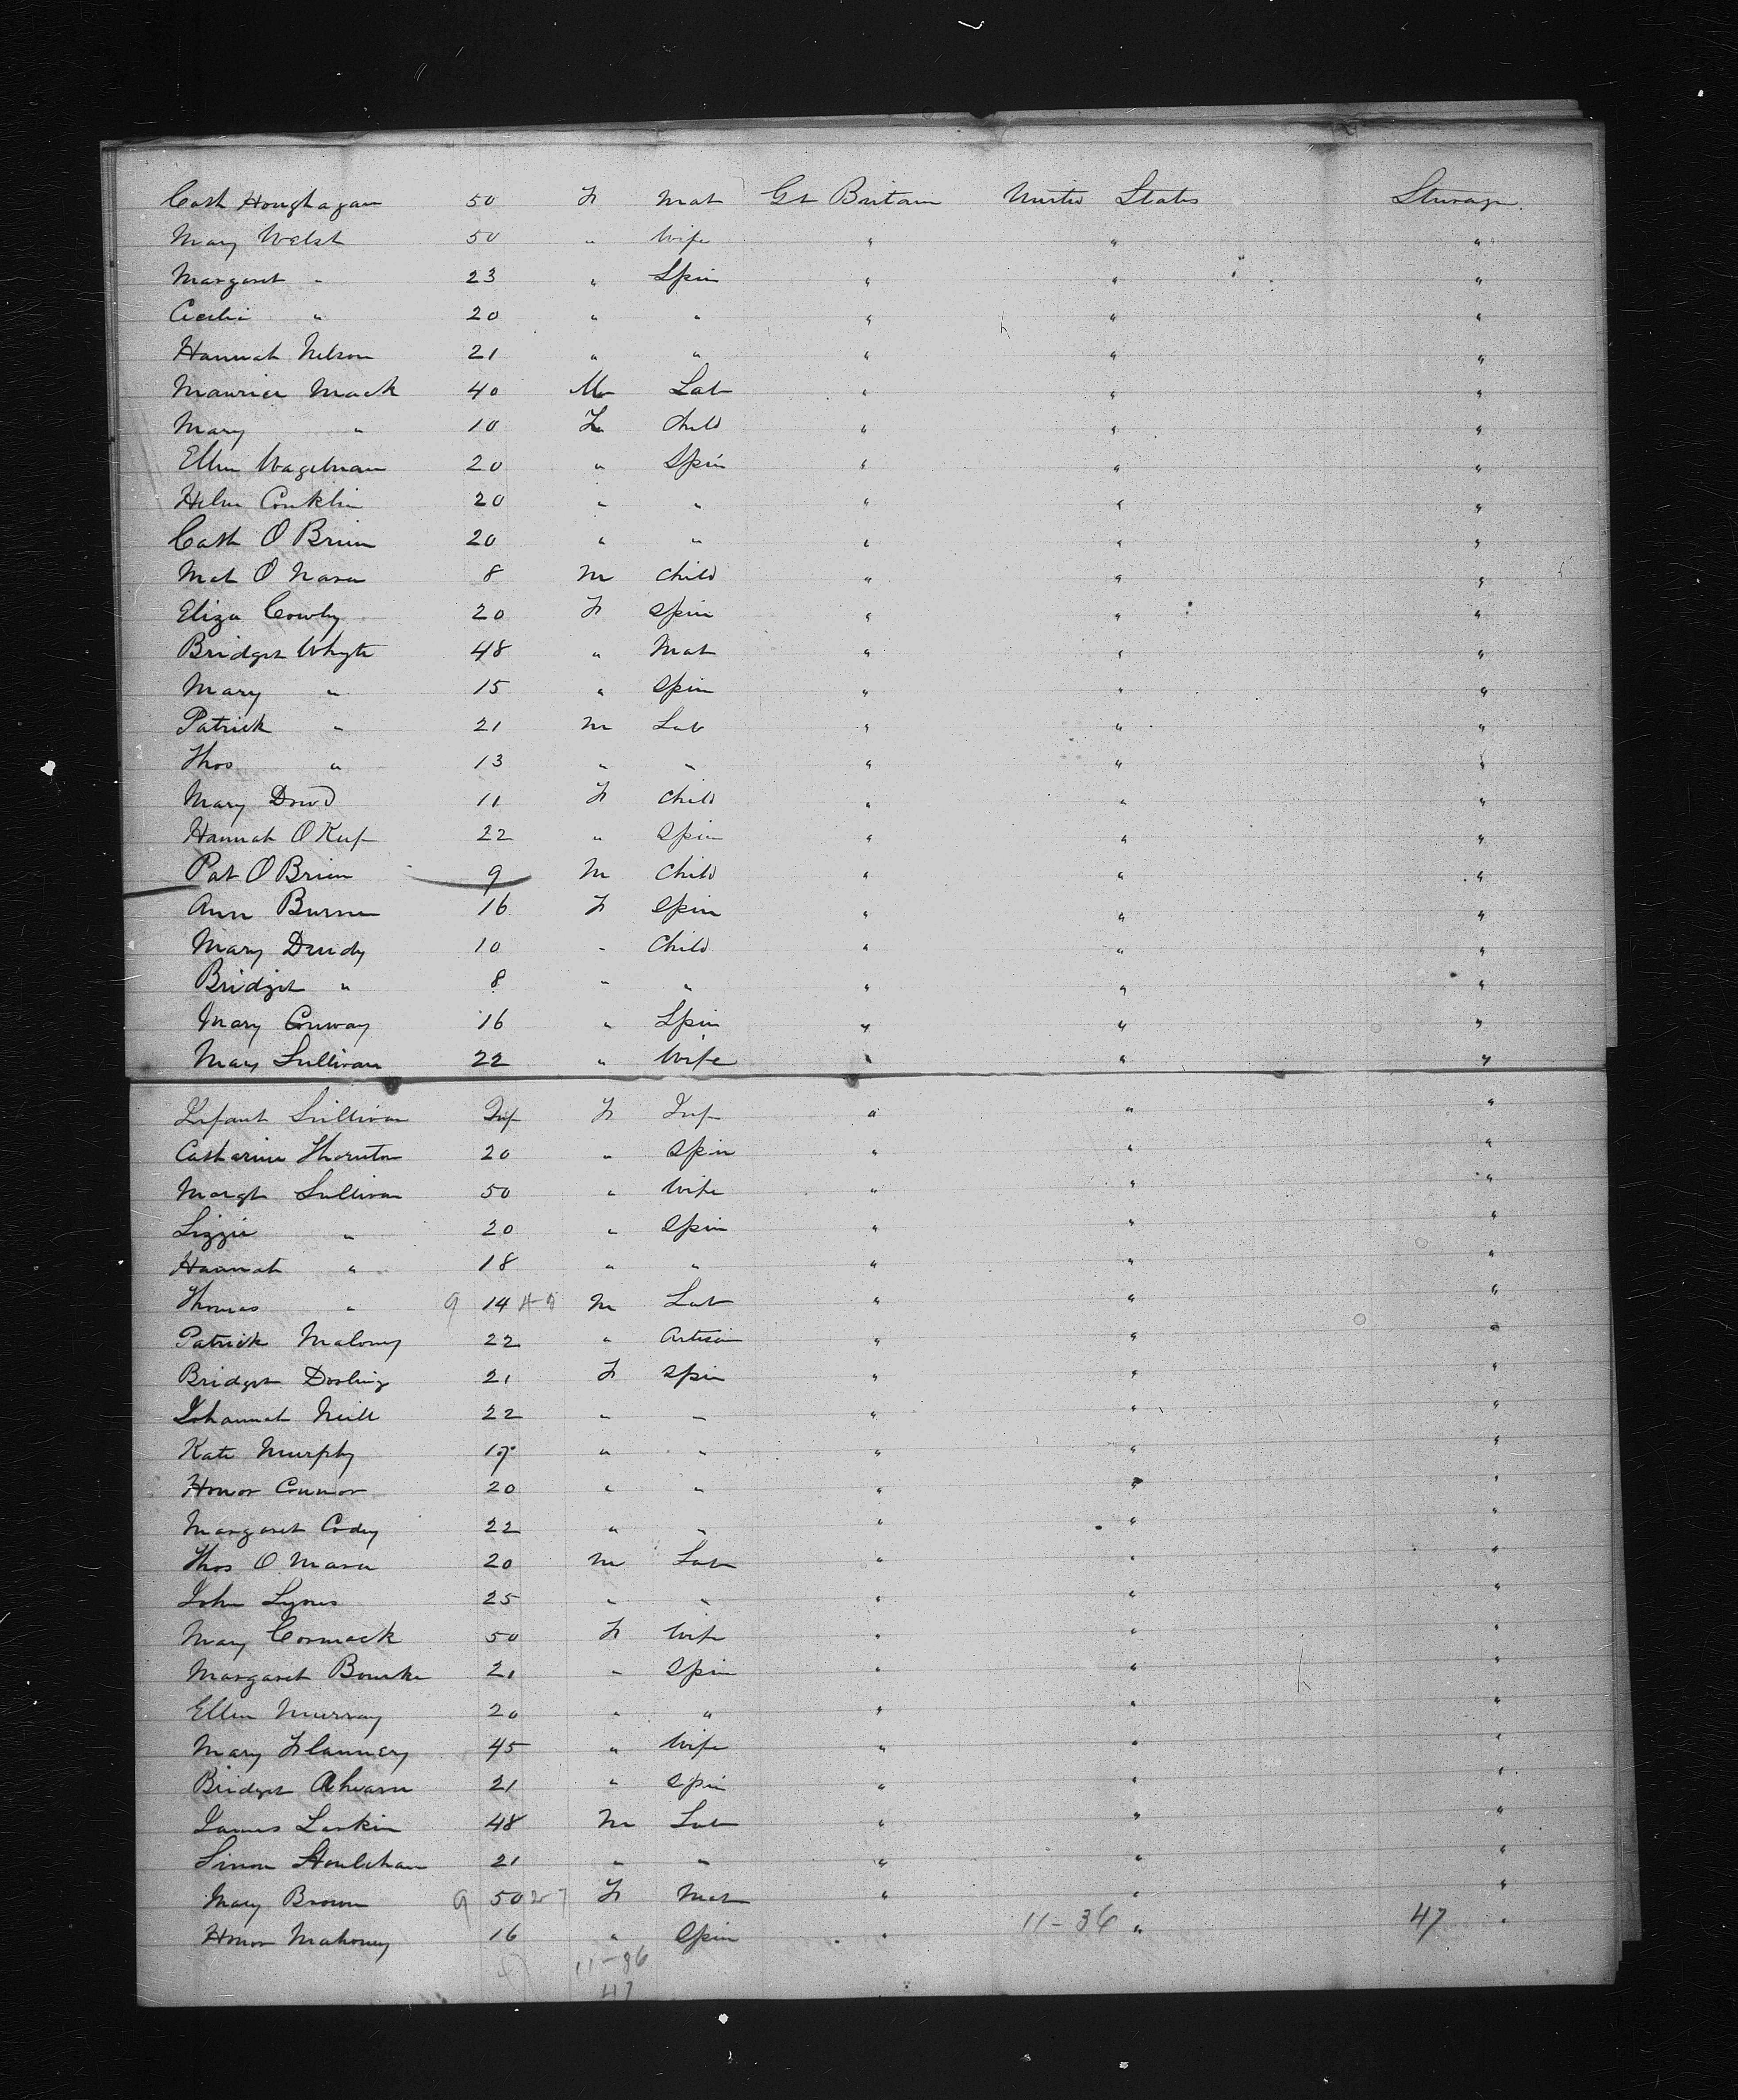 Cath Houghagan 50 F Mat Gt Britain United States Steerage.
Mary Welsh 50 " Wife " " "
Margaret " 23 " Spin " " "
Cecelia " 20 " " " " "
Hannah Nelson 21 " " " " "
Maurice Mack 40 M Lab " " "
Mary " 10 F Child " " "
Ellen 20 " Spin " " "
Helen Conklin 20 " " " " "
Cath O Brien 20 " " " " "
Mat O Nara 8 M Child " " "
Eliza Cowley 20 F Spin " " "
Bridget Whyte 48 " Mat " " "
Mary " 15 " Spin " " "
Patrick " 21 M Lab " " "
Thos " 13 " " " " "
Mary Dowd 11 F Child " " "
Hannah O Keef 22 " Spin " " "
Pat O Brien 9 M Child " " "
Ann Burne 16 F Spin " " "
Mary Drudy 10 " Child " " "
Bridget " 8 " " " " "
Mary Conway 16 " Spin " " "
Mary Sullivan 22 " Wife " " "
Infant Sullivan Inf F Inf " " "
Catharine Thornton 20 " Spin " " "
Margt Sullivan 50 " Wife " " "
Lizzie " 20 " Spin " " "
Hannah " 18 " " " " "
Thomas " 9 14 M Lab " " "
Patrick Malony 22 " Artisan " " "
Bridget Dooling 21 F Spin " " "
Johannah Neill 22 " " " " "
Kate Murphy 17 " " " " "
Honor Connor 20 " " " " "
Margaret Cody 22 " " " " "
Thos O Mara 20 M Lab " " "
John Lynes 25 " " " " "
Mary Cormack 50 F Wife " " "
Margaret Bourke 21 " Spin " " "
Ellen Murray 20 " " " " "
Mary Flannery 45 " Wife " " "
Bridget Ahearn 21 " Spin " " "
James Larkin 48 M Lab " " "
Simon Houlehan 21 " " " " "
Mary Brown 9 50 F Mat " " "
Honor Mahoney 16 " Spin " 11-36 " 47 "
11-36
47